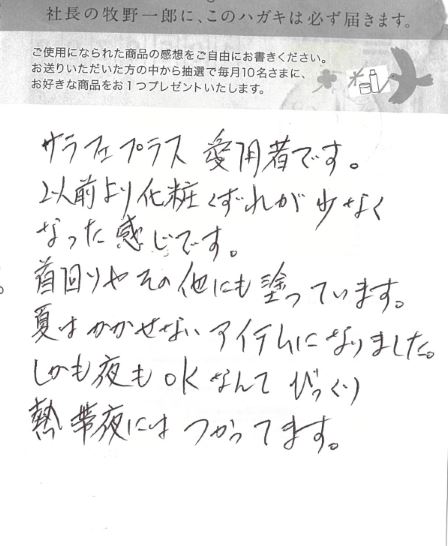 社長の牧野一郎に、このハガキは必ず届きます。
ご使用になられた商品の感想をご自由にお書きください。
お送りいただいた方の中から抽選で毎月10名さまに、
お好きな商品をお1つプレゼントいたします。
サラフェプラス 愛用者です。
以前より化粧くずれが少なく
なった感じです。
首回りやその他にも塗っています。
夏はかかせないアイテムになりました。
しかも夜もOKなんて びっくり
熱帯夜には つかってます。